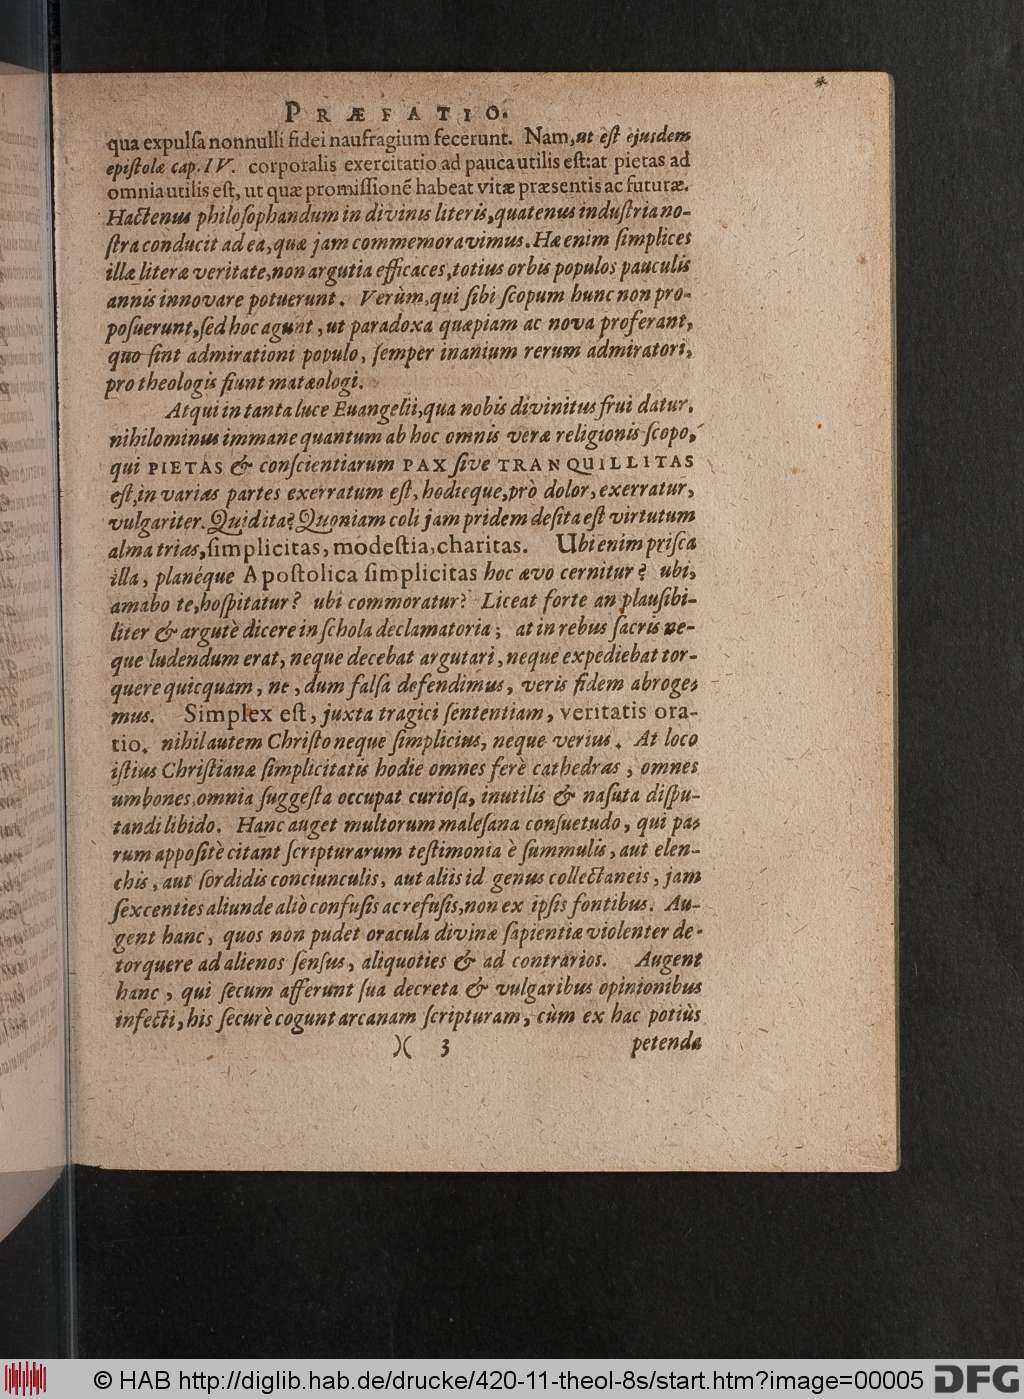 PRÆFATIO.
qua expulſa nonnulli fidei naufragium fecerunt. Nam, ut eſt ejusdem
epiſtolæ cap. IV. corporalis exercitatio ad pauca utilis eſt: at pietas ad
omnia utilis eſt, ut quæ promiſſionē habeat vitæ præsentis ac futuræ.
Hactenus philoſophandum in divinis literis, quatenus induſtria no-
ſtra conducit ad ea, quæ jam commemoravimus. Hæ enim ſimplices
illæ literæ veritate, non argutia efficaces, totius orbis populos pauculis
annis innovare potuerunt. Verùm, qui ſibi ſcopum hunc non pro-
poſuerunt, ſed hoc agunt, ut paradoxa quæpiam ac nova proferant,
quo ſint admirationi populo, ſemper inanium rerum admiratori,
pro theologis fiunt matæologi.
Atqui in tanta luce Euangelii, qua nobis divinitus frui datur,
nihilominus immane quantum ab hoc omnis veræ religionis ſcopo,
qui PIETAS & conſcientiarum PAX ſive TRANQUILLITAS
eſt, in varias partes exerratum eſt, hodieque, prò dolor, exerratur,
vulgariter. Quid ita? Quoniam coli jam pridem deſita eſt virtutum
alma trias, ſimplicitas, modeſtia, charitas. Ubi enim priſca
illa, planéque Apoſtolica ſimplicitas hoc ævo cernitur? ubi,
amabo te, hoſpitatur? ubi commoratur? Liceat forte an plauſibi-
liter & argutè dicere in ſchola declamatoria; at in rebus ſacris ne-
que ludendum erat, neque decebat argutari, neque expediebat tor-
quere quicquam, ne, dum falſa defendimus, veris fidem abroge-
mus. Simplex eſt, juxta tragici ſententiam, veritatis ora-
tio. nihil autem Chriſto neque ſimplicius, neque verius. At loco
iſtius Chriſtianæ ſimplicitatis hodie omnes ferè cathedras, omnes
umbones, omnia ſuggeſta occupat curioſa, inutilis & naſuta diſpu-
tandi libido. Hanc auget multorum maleſana conſuetudo, qui pa-
rum appoſitè citant ſcripturarum teſtimonia è ſummulis, aut elen-
chis, aut ſordidis conciunculis, aut aliis id genus collectaneis, jam
ſexcenties aliunde aliò confuſis ac refuſis, non ex ipſis fontibus. Au-
gent hanc, quos non pudet oracula divinæ ſapientiæ violenter de-
torquere ad alienos ſenſus, aliquoties & ad contrarios. Augent
hanc, qui ſecum afferunt ſua decreta & vulgaribus opinionibus
infecti, his ſecurè cogunt arcanam ſcripturam, cùm ex hac potiùs
)( 3 petenda
© HAB http://diglib.hab.de/drucke/420-11-theol-8s/start.htm?image=00005 DFG